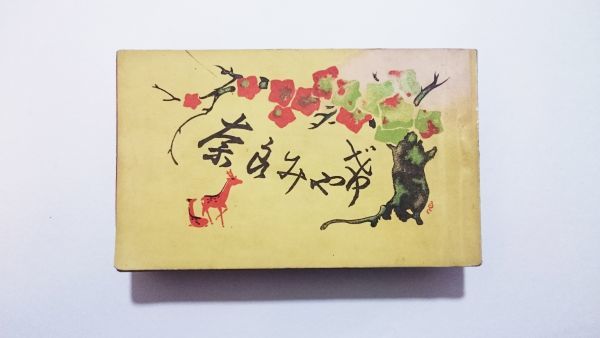 奈良みやげ